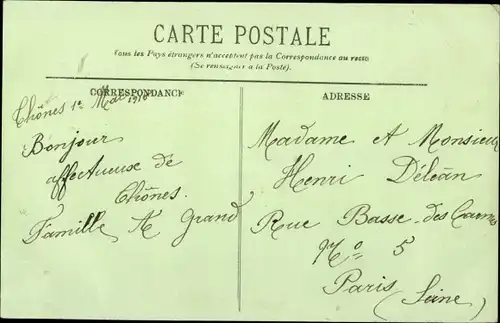 CARTE POSTALE
Tous les Pays étrangers n'acceptent pas la Correspondance au recto
(Se renseigner à la Poste).
CORRESPONDANCE
ADRESSE
Thônes 1e Mai 1910
Bonjour
affectueuse de
Thônes.
Famille A Grand
Madame et Monsieur
Henri Déléan
Rue Basse des Carmes
No 5
Paris (Seine)